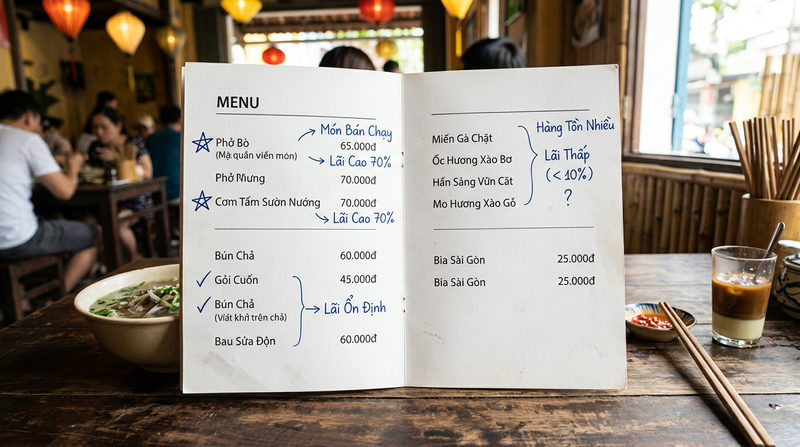 MENU
Món Bán Chạy
Phở Bò 65.000đ
(Mạ quần viến món) Lãi Cao 70%
Phở Nưng 70.000đ
Cơm Tấm Sườn Nướng 70.000đ
Lãi Cao 70%
Bún Chả 60.000đ
Gỏi Cuốn 45.000đ
Bún Chả
(Viất khờ trên chả)
Lãi Ổn Định
Bau Sữa Độn 60.000đ
Hàng Tồn Nhiều
Miến Gà Chặt
Ốc Hương Xào Bơ
Lãi Thấp
Hấn Sảng Vữn Cặt
(<10%)
Mo Hương Xào Gố
?
Bia Sài Gòn 25.000đ
Bia Sài Gòn 25.000đ